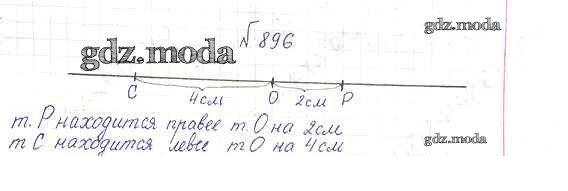 gdz.moda
№ 896
gdz.moda
C 4см O 2см P
т. P находится правее т. O на 2см
т C находится левее т O на 4см
gdz.moda